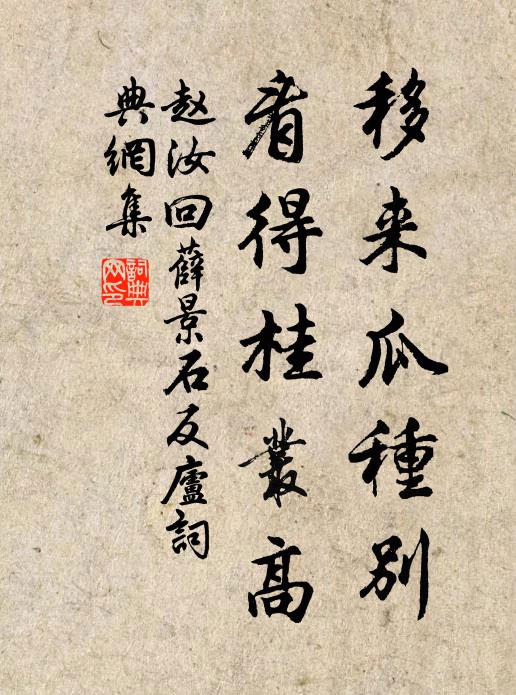 移来瓜種别
看得桂叢高
赵汝回薛景石反廬詞
典網集
詞典网印